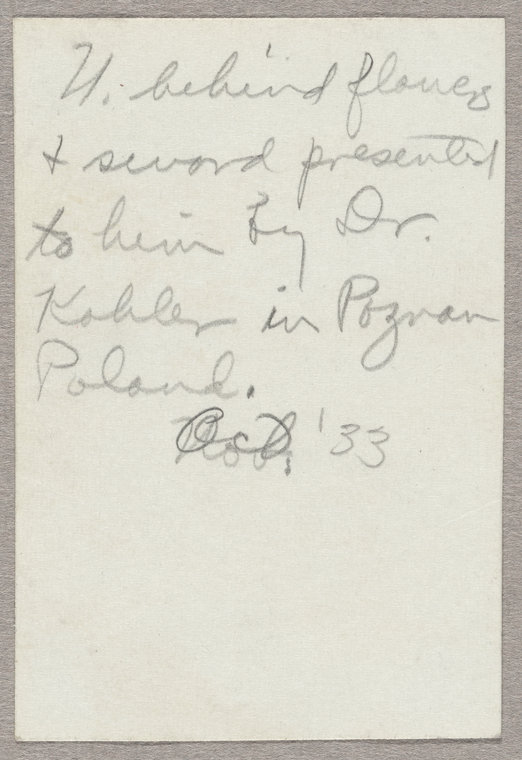 U. behind flowers
& sword presented
to him by Dr.
Kohler in Poznan
Poland.
Oct '33